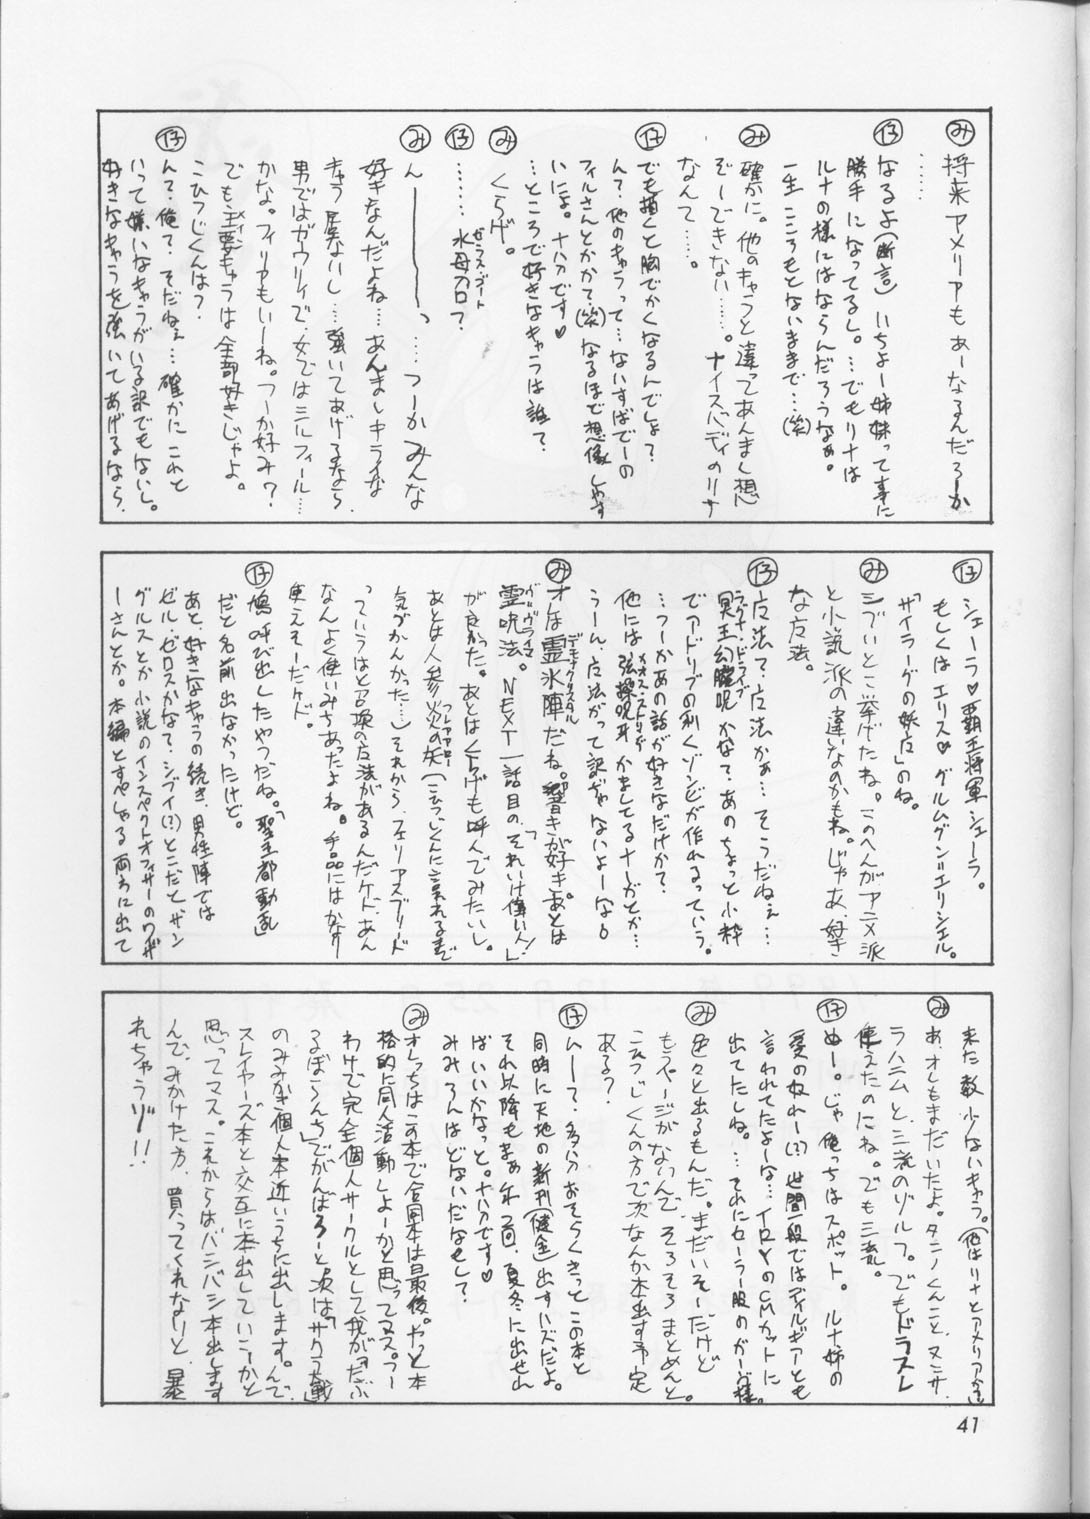 ㋯ 将来アメリアもあーなるんだろーか
……
㋑ なるよ(断言) いちよー姉妹って事に
勝手になってるし。…でもリナは
ルナの様にはならんだろうなぁ。
一生こころもとないままで…(笑)
㋯ 確かに。他のキャラと違ってあんまし想
ぞーできない……。ナイスバディのリナ
なんて……。
㋑ でも描くと胸でかくなるんでしょ?
んて?他のキャラって…ないすばでーの
フィルさんとかかて?(笑) なるほで想像しやす
いによ。十八刀です♥
…ところで好きなキャラは誰て?
㋯ くらげ。
㋑ ……水母刀口て?
㋯ ん————っ……つーかみんな
好きなんだよね…あんましキライな
きゃう居ないし…強いてあげるなら
男ではガウリイで、女ではミルフィール…
かな。フィリアもいーね。つーか好み?
でも、主要キャラは全部好きじゃよ。
こひつじくんは?
㋑ んて?俺て?そだねぇ…確かにこれと
いって嫌いなキャラがいる訳でもないし。
好きなキャラを強いてあげるなら、
㋑ シェーラ♥覇王将軍シェーラ。
もしくはエリス♥グルムグン=エリシエル。
「ザイラーグの妖臣」のね。
㋯ シブいとこ挙げたね。このへんがアニメ派
と小説派の違いなのかもね。じゃあ、好き
な方法。
㋑ 方法て?方法かぁ…そうだねぇ…
冥王幻朧呪かなて?あのちょっと小粋
でアドリブの利くゾンビが作れるっていう。
…つーかあの話が好きなだけか?
他には強操呪耳かましてるナーガとか…
うーん、方法がって訳ぢゃないよーな。
㋯ オレは霊氷陣だね。響きが好き。あとは
霊呪法。NEXT一話目の、「それいけ偉い人!」
が良かった。あとはくらげも呼んでみたいし。
あとは人参火の矢(こひつじくんに言われるまで
気づかんかった…) それから、フェリアスブリード
っていうはと召換の方法があるんだケド、あん
なんよく使いみちあったよね。手品にはかなり
使えそーだケド。
㋑ 鳩呼び出したやつだね。「聖王都動乱」
だと名前出なかったけど。
あと、好きなキャラの続き、男性陣では
ゼル・ゼロスかなて?シブイ(?)とこだとザン
グルスとか小説のインスペクトオフィサーのワイザ
ーさんとか。本編とすぺしゃる両方に出て
来た数少ないキャラ。(他はリナとアメリア?
㋯ あ、オレもまだいたよ。タニノくんこと、ヌンサ。
ラハニムと、三流のゾルフ。でもドラスレ
使えたのにね。でも三流。
㋑ ぬー。じゃ俺っちはスポット。ルナ姉の
愛の奴れー(!?)世間一段ではディルギアとも
言われてたよーな…イロYのCMカットに
出てたしね。…それにセーラー服のガーヴ様。
㋯ 色々と出るもんだ。まだいそーだけど
もうページがないんで、そろそろまとめんと。
こひつじくんの方で次なんか本出す予定
ある?
㋑ んーて?多分おそらくきっとこの本と
同時に天地の新刊(健全)出すハズだよ。
それ以降もまぁ年2回、夏冬に出せれ
ばいいかなっと。十八刀です♥
みみろんはどないだなもして?
㋯ オレっちはこの本で合同本は最後。やっと本
格的に同人活動しよーかと思ってマス。つー
わけで完全個人サークルとして我が「だぶ
るぼーらんち」でがんばろーと。次は「サクラ大戦」
のみみかき個人本近いうちに出します。んで、
スレイヤーズ本と交互に本出していこーかと
思ってマス。これからはバンバン本出します
んで、みかけた方、買ってくれないと、暴
れちゃうゾ!!
41